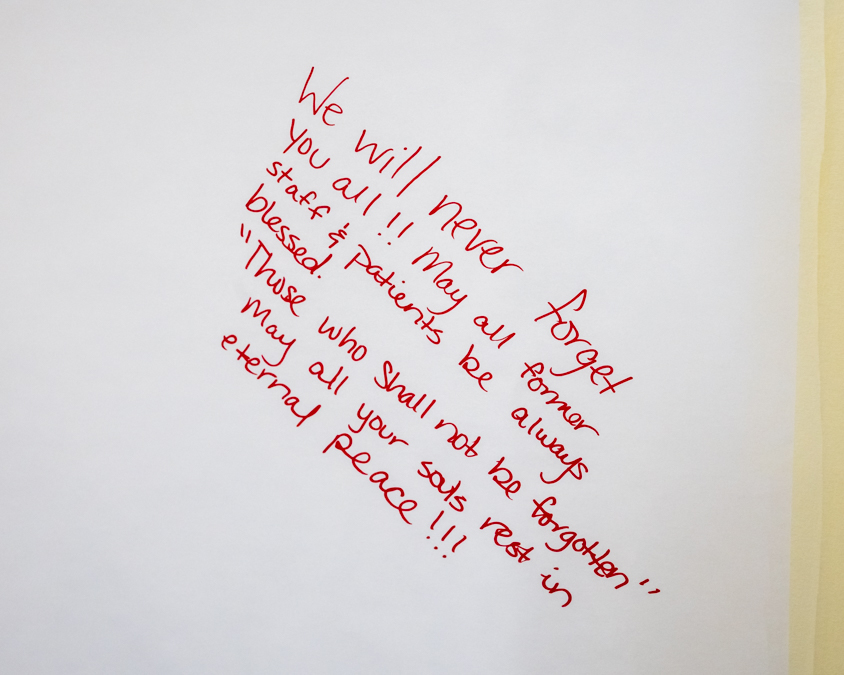 We will never forget
you all!! May all former
staff & patients be always
blessed.
"Those who shall not be forgotten"
May all your souls rest in
eternal peace!!!